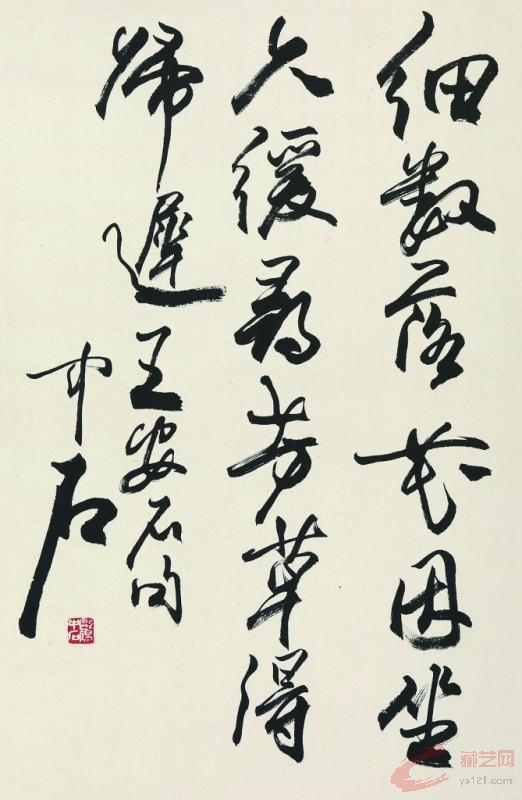 细数落花因坐
久缓寻芳草得
归遲王安石句
中石
欧阳中石
藏艺网
ys121.com